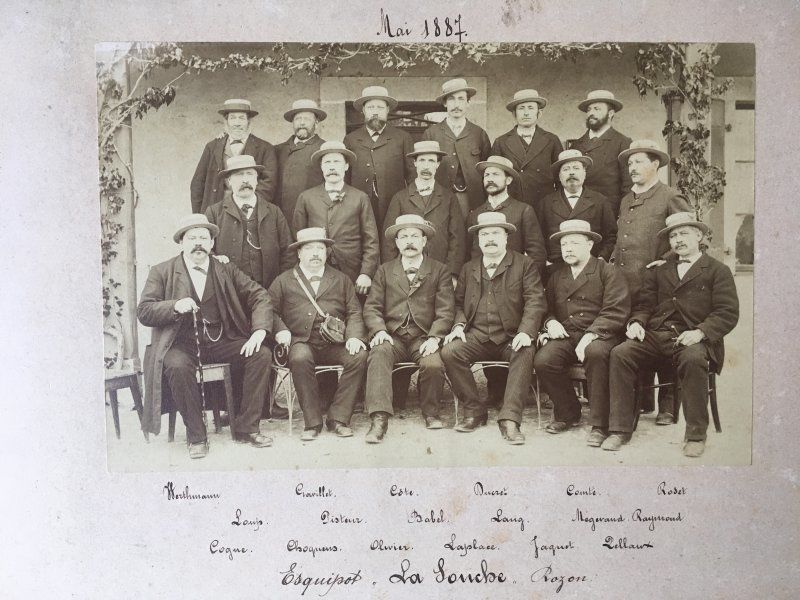 Mai 1887.
Werthmann Gavillet. Cote. Ducret Comte. Rodet
Loup. Disteur. Babel. Lang. Megevand. Raymond
Cogne. Choquens. Olivier. Laplace. Jaquet Dellaux
Esquipot. "La Souche" Rozon.